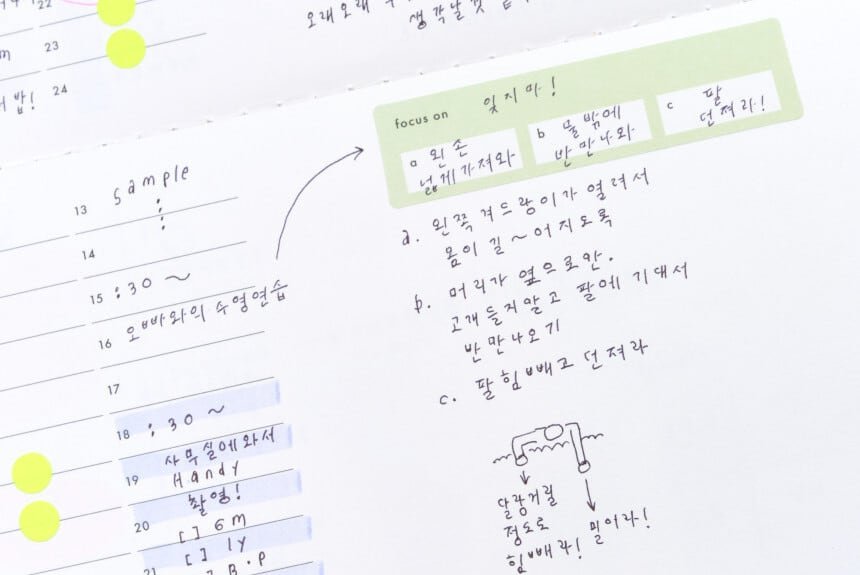 22
23
24
밥!
오래오래
생각날 것
13 sample
:
:
14
15 :30 ~
16 오빠와의 수영연습
17
18 :30 ~
사무실에와서
19 Handy
촬영!
20
[ ] 6m
[ ] 1y
21
B.P
focus on 잊지마!
a 왼손
넓게가져와
b 물밖에
반만나와
c 팔
던져라!
a. 왼쪽겨드랑이가 열려서
몸이 길~어지도록
b. 머리가 옆으로만.
고개들지말고 팔에 기대서
반만나오기
c. 팔힘빼고 던져라
달랑거릴
정도로
힘빼라!
밀어라!